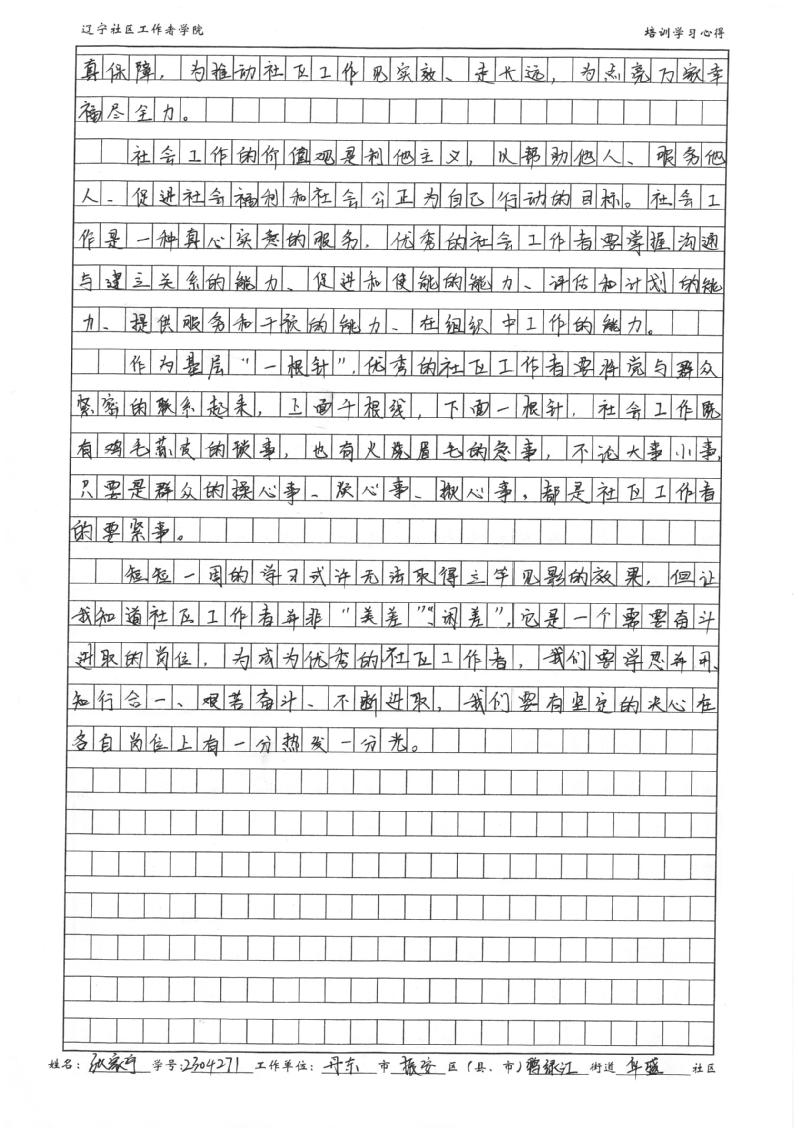 辽宁社区工作者学院 培训学习心得
真保障，为推动社区工作见实效、走长远，为点亮万家幸
福尽全力。
社会工作的价值观是利他主义，以帮助他人、服务他
人、促进社会福利和社会公正为自己行动的目标。社会工
作是一种真心实意的服务，优秀的社会工作者要掌握沟通
与建立关系的能力、促进和使能的能力、评估和计划的能
力、提供服务和干预的能力、在组织中工作的能力。
作为基层“一根针”，优秀的社区工作者要将党与群众
紧密的联系起来，上面千根线，下面一根针，社会工作既
有鸡毛蒜皮的琐事，也有火烧眉毛的急事，不论大事小事，
只要是群众的操心事、烦心事、揪心事，都是社区工作者
的要紧事。
短短一周的学习或许无法取得立竿见影的效果，但让
我知道社区工作者并非“美差”“闲差”，它是一个需要奋斗
进取的岗位，为成为优秀的社区工作者，我们要学思并用、
知行合一、艰苦奋斗、不断进取，我们要有坚定的决心在
各自岗位上有一分热发一分光。
姓名：张家宁 学号：2304271 工作单位：丹东 市 振安 区（县、市）鸭绿江 街道 华盛 社区